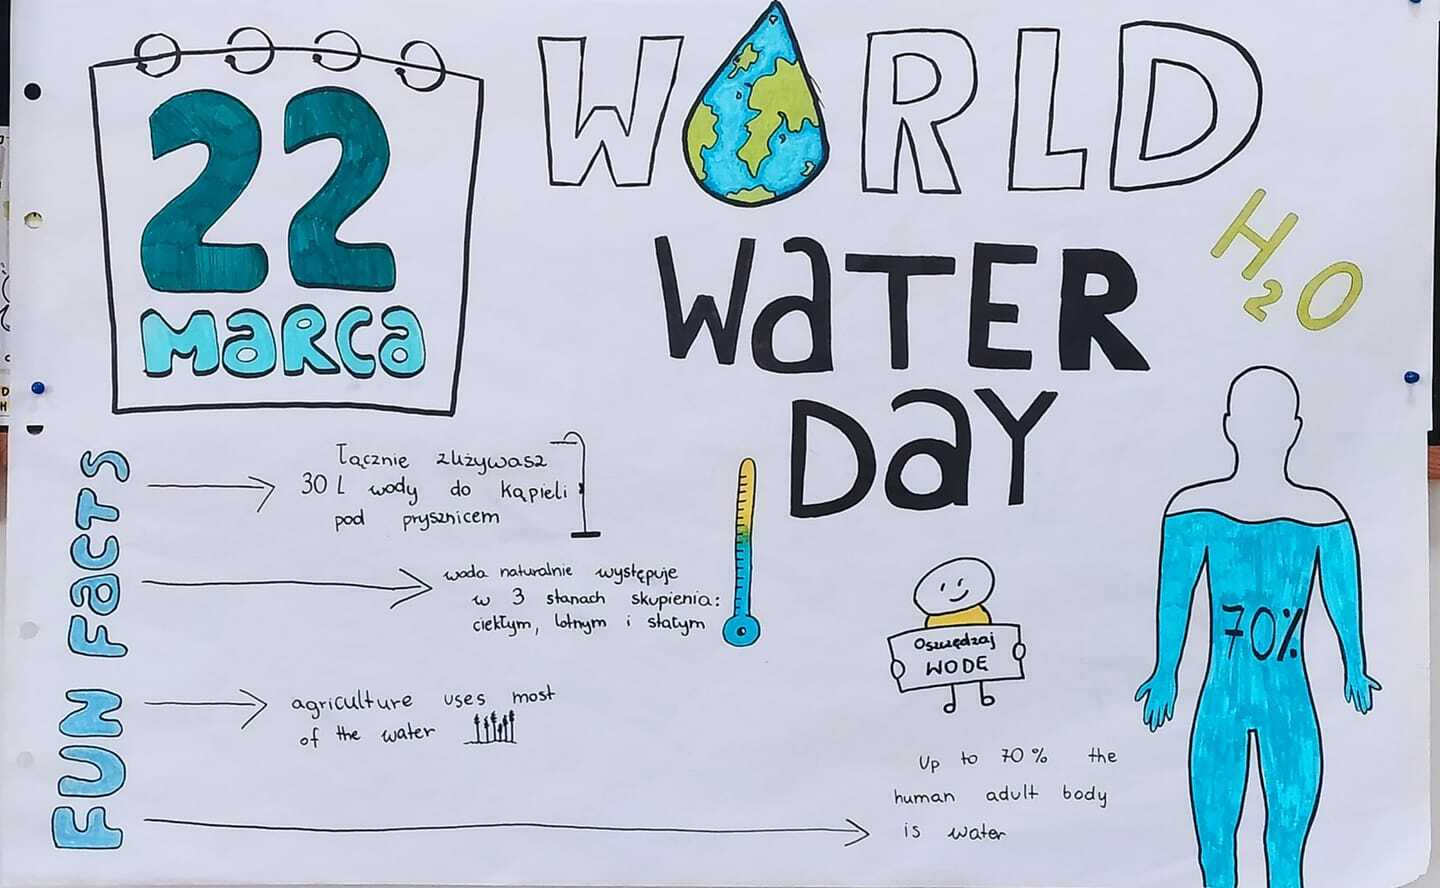 22
MARCA
WORLD
WATER
DAY
H2O
FUN FACTS
Łącznie zużywasz
30 L wody do kąpieli
pod prysznicem
woda naturalnie występuje
w 3 stanach skupienia:
ciekłym, lotnym i stałym
agriculture uses most
of the water
Oszczędzaj
WODĘ
70%
Up to 70% the
human adult body
is water